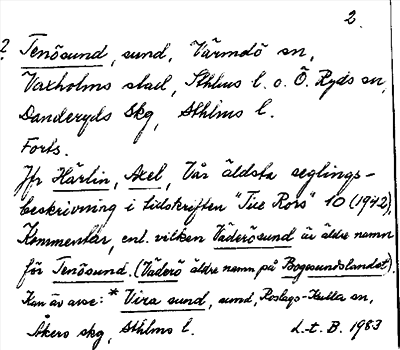 2.
? Tenösund, sund, Värmdö sn,
Vaxholms stad, Sthlms l. o. Ö. Ryds sn,
Danderyds Skg, Sthlms l.
Forts.
Jfr Härlin, Axel, Vår äldsta seglings-
beskrivning i tidskriften "Till Rors" 10 (1942),
Kommentar, enl. vilken Väderösund är äldre namn
för Tenösund. (Väderö äldre namn på Bogesundslandet).
Kan äv avse: * Vira sund, sund, Roslags-Kulla sn,
Åkers skg, Sthlms l. L.t. B. 1983